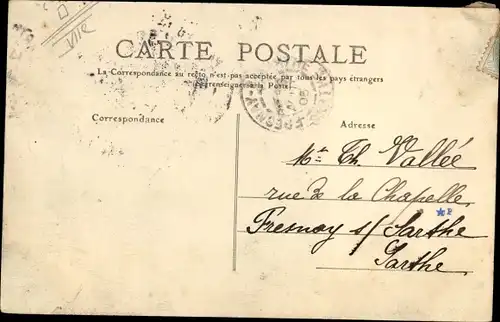 CARTE POSTALE
La Correspondance au recto n'est pas acceptée par tous les pays étrangers
(Se renseigner à la Poste)
Correspondance
Adresse
Mr Th. Vallée
rue de la Chapelle
Fresnay s/ Sarthe
Sarthe